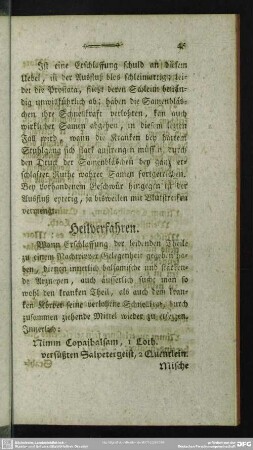 45
Ist eine Erschlaffung schuld an diesem
Uebel, so ist der Ausfluß blos schleimartig; lei-
det die Prostata, fließt deren Schleim bestän-
dig unwillkührlich ab; haben die Samenbläs-
chen ihre Schnellkraft verlohren, kan auch
wirklicher Samen abgehen, in diesem letzten
Fall wird, wann die Kranken bey hartem
Stuhlgang sich stark anstrengen müssen, durch
den Druck der Samenbläschen bey ganz er-
schlafter Ruthe wahrer Samen fortgetrieben.
Bey vorhandenem Geschwür hingegen ist der
Ausfluß eyterig, ja bisweilen mit Blutstreifen
vermengt.
Heilverfahren.
Wann Erschlaffung der leidenden Theile
zu einem Nachtripper Gelegenheit gegeben ha-
ben, dienen innerlich balsamische und stärken-
de Arzneyen, auch äusserlich sucht man so
wohl den kranken Theil, als auch dem kran-
ken Körper seine verlohrne Schnellkraft, durch
zusammen ziehende Mittel wieder zu ersetzen.
Innerlich:
Nimm Copaivbalsam, 1 Loth.
versüßten Salpetergeist, 2 Quentlein.
Mische